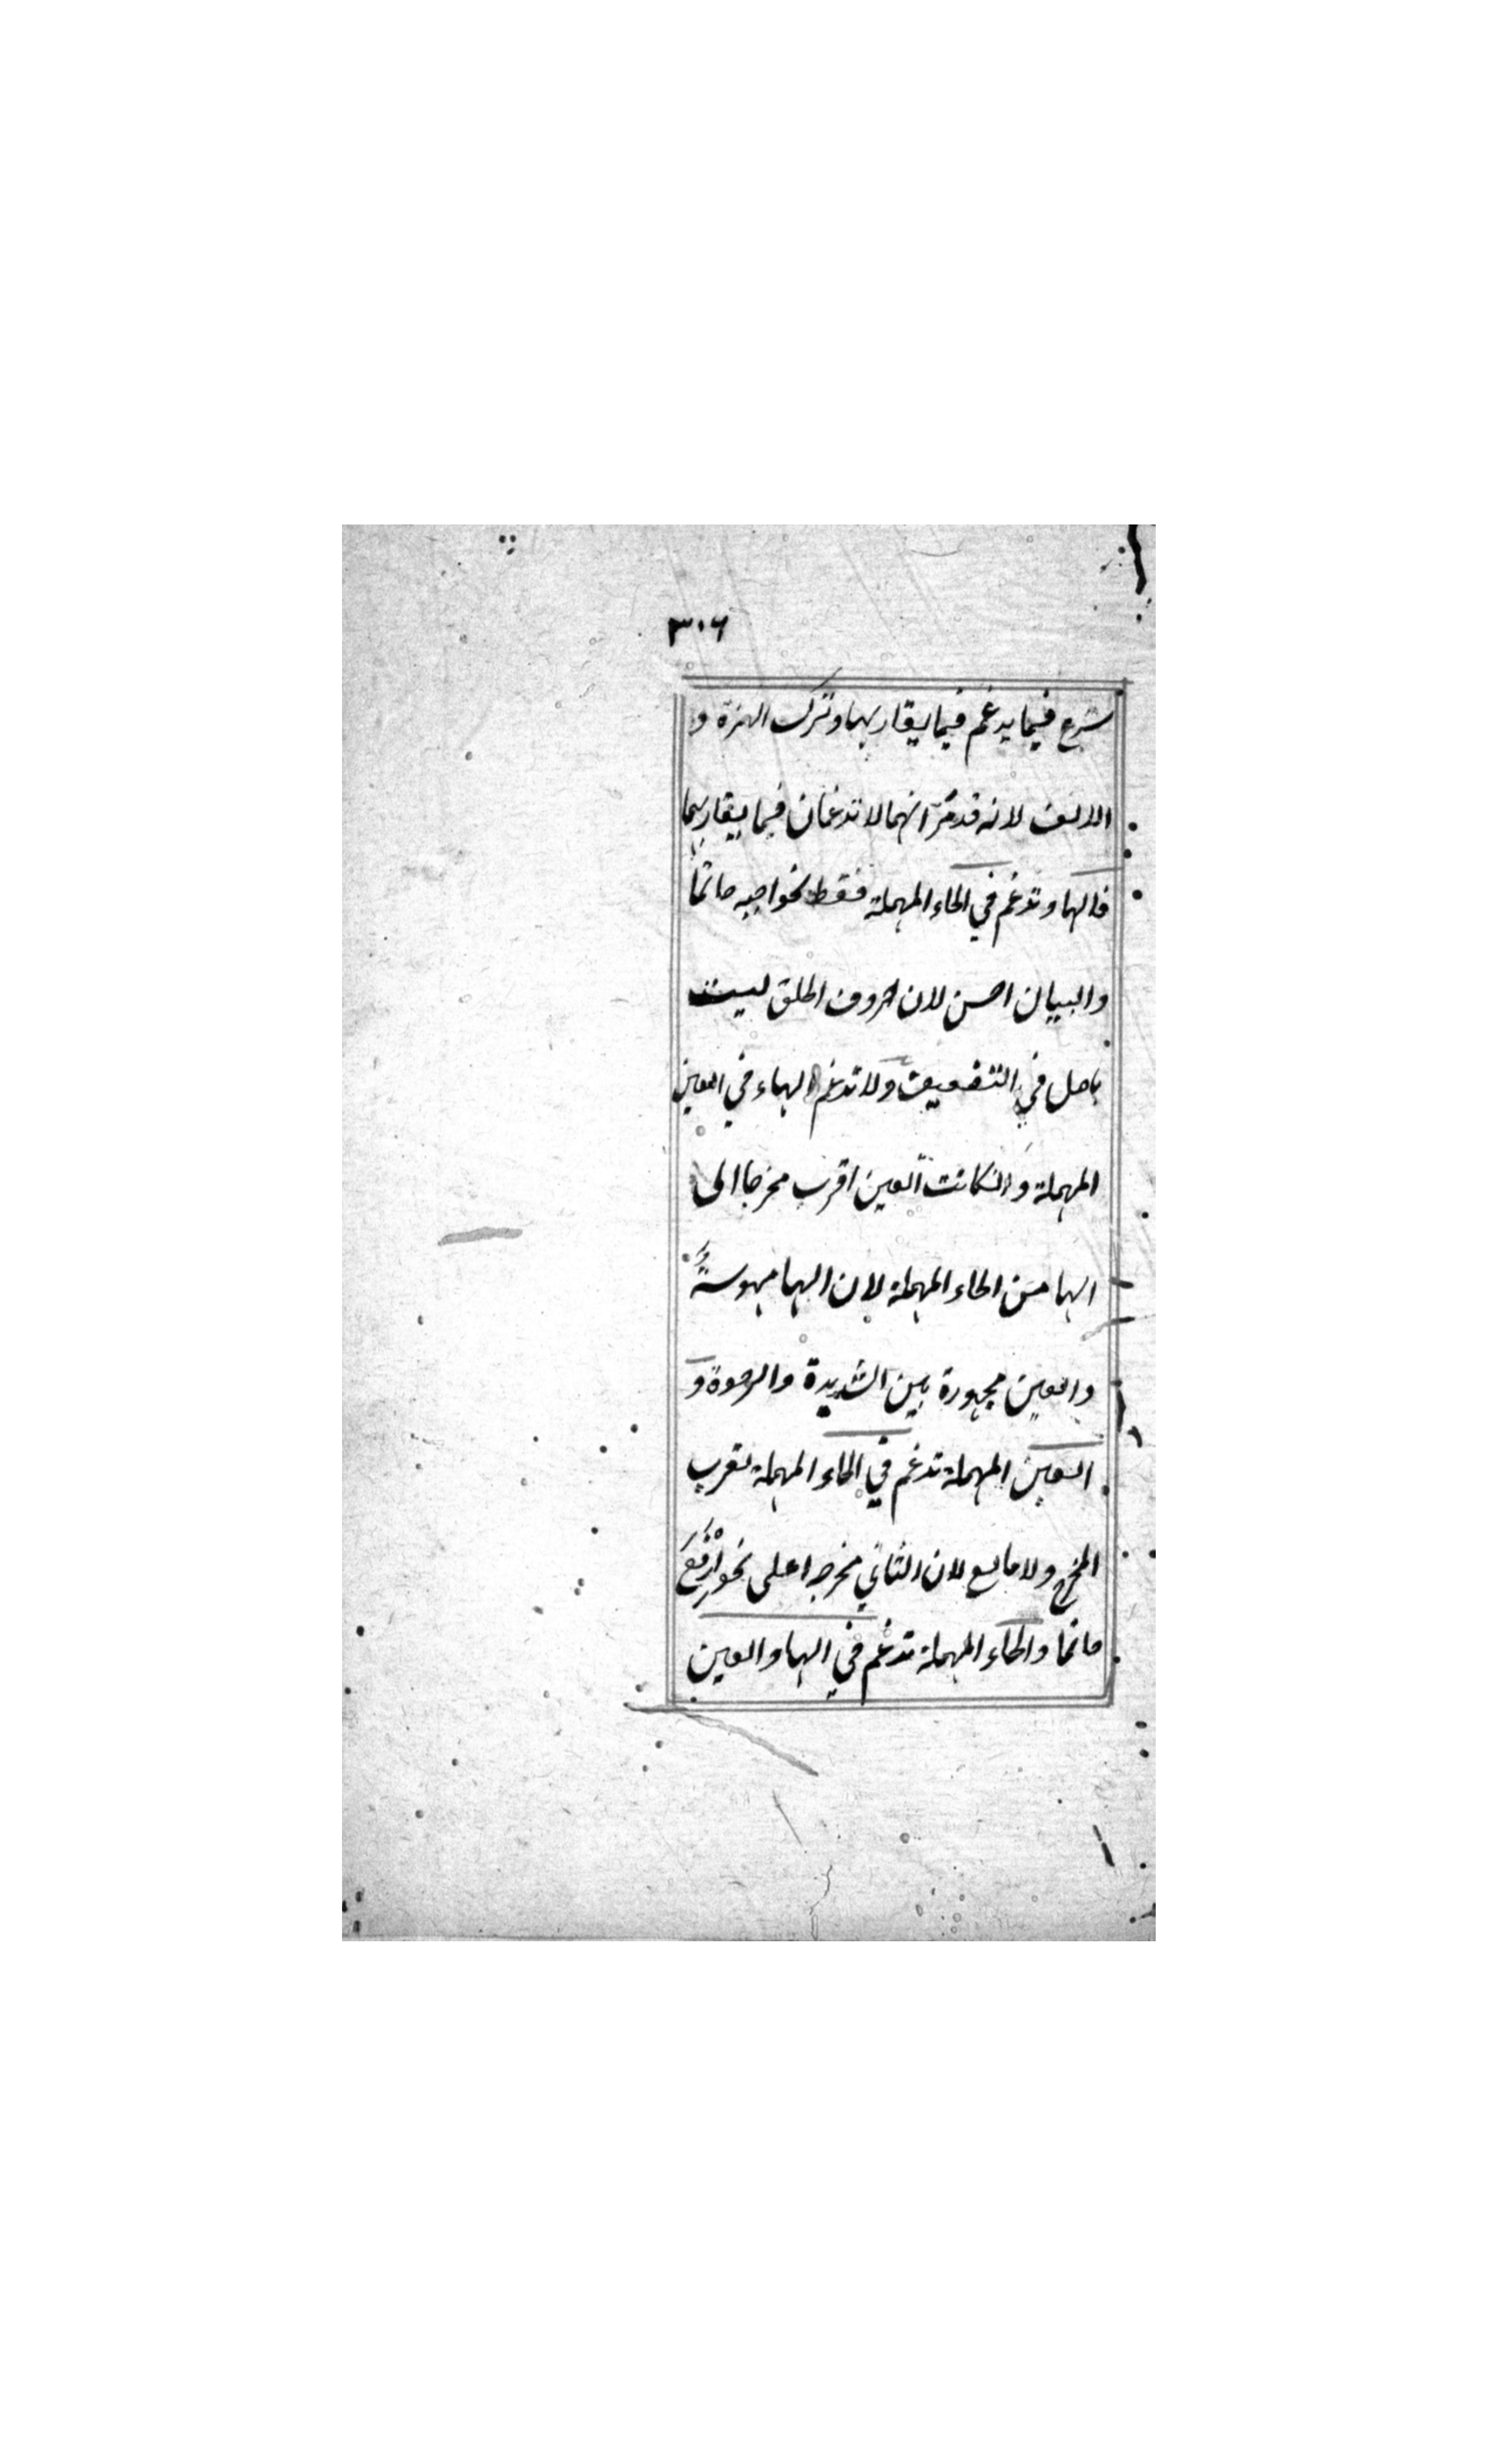 ٣٠٦
شرع فيما يدغم فيما يقاربها وترك الهمزة و
الالف لانه قد مرّ انهما لا تدغمان فيما يقاربهما
فالهاء تدغم في الحاء المهملة فقط نحو اجبه حاتما
والبيان احسن لان حروف الحلق ليست
باصل في التضعيف ولا تدغم الهاء في العين
المهملة وانكانت العين اقرب مخرجا الى
الها من الحاء المهملة لان الها مهموسة
والعين مجهورة بين الشديدة والرخوة و
العين المهملة تدغم في الحاء المهملة لقرب
المخرج ولا مانع لان الثاني مخرجه اعلى نحو ارْفَعْ
حاتما والحاء المهملة تدغم في الها والعين